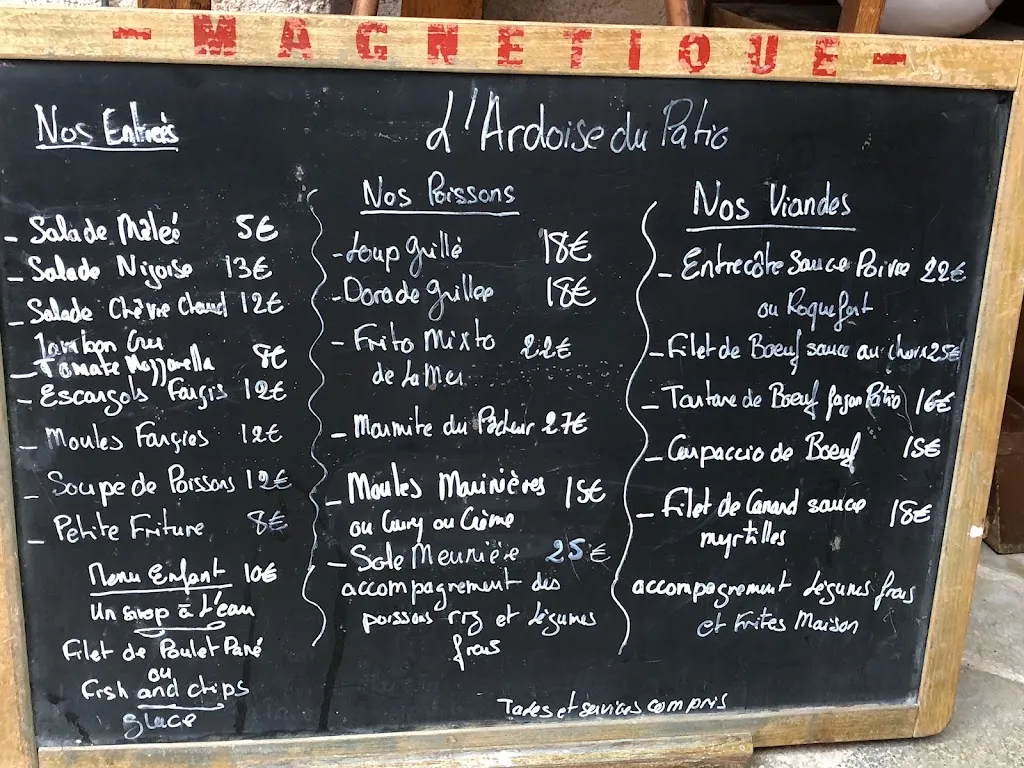 - MAGNETIQUE -
L'Ardoise du Patio
Nos Entrées
- Salade Mêleé 5€
- Salade Niçoise 13€
- Salade Chèvre Chaud 12€
Jambon Cru
- Tomate Mozzarella 8€
- Escargots Farçis 12€
- Moules Farçies 12€
- Soupe de Poissons 12€
- Petite Friture 8€
Menu Enfant 10€
Un sirop à L'eau
Filet de Poulet Pané
ou
Fish and chips
glace
Nos Poissons
- Loup grillé 18€
- Dorade grillée 18€
- Frito Mixto 22€
de La Mer
- Marmite du Pêcheur 27€
- Moules Marinières 15€
ou Curry ou Crème
- Sole Meunière 25€
accompagnement des
poissons riz et légumes
frais
Nos Viandes
- Entrecôte Sauce Poivre 22€
ou Roquefort
- Filet de Boeuf sauce au choix 25€
- Tartare de Boeuf façon Patio 16€
- Carpaccio de Boeuf 15€
- Filet de Canard sauce 18€
myrtilles
accompagnement légumes frais
et Frites Maison
Taxes et services compris